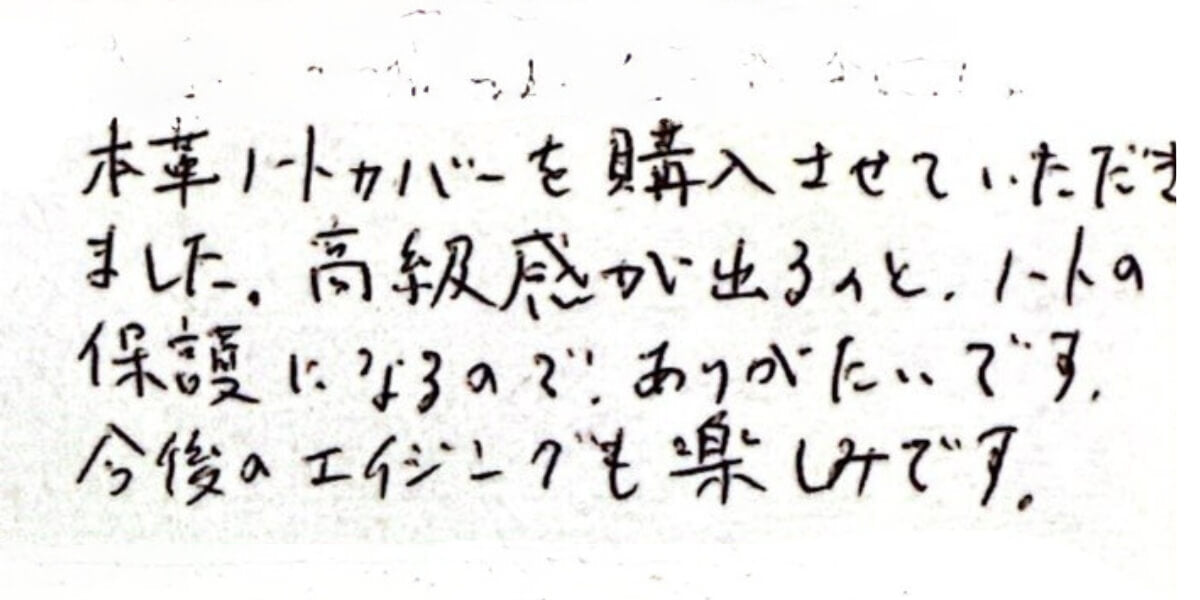 本革ノートカバーを購入させていただき
ました。高級感が出るのと、ノートの
保護になるので、ありがたいです。
今後のエイジングも楽しみです。